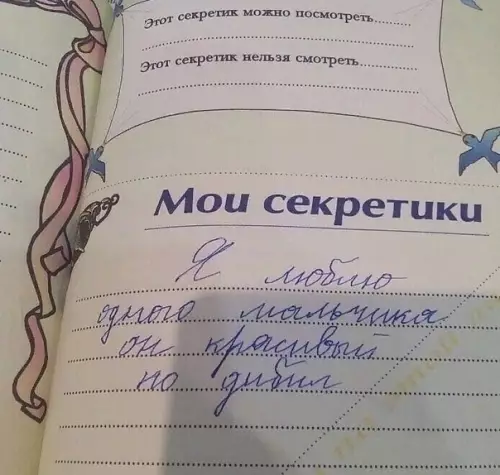 Этот секретик можно посмотреть......
Этот секретик нельзя смотреть......
Мои секретики
Я люблю
одного мальчика
он красивый
но дибил